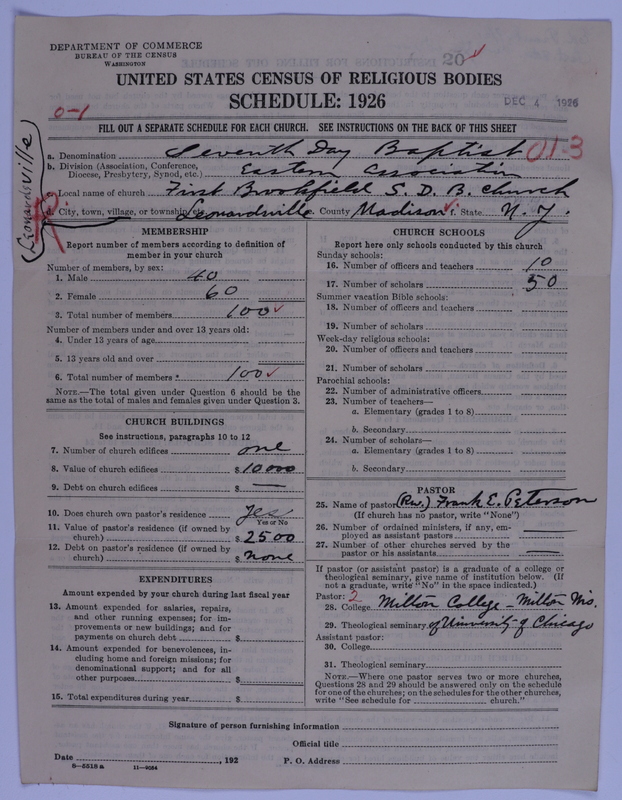 DEPARTMENT OF COMMERCE
BUREAU OF THE CENSUS
WASHINGTON
20
UNITED STATES CENSUS OF RELIGIOUS BODIES
SCHEDULE: 1926
0-1
DEC 4 1926
FILL OUT A SEPARATE SCHEDULE FOR EACH CHURCH. SEE INSTRUCTIONS ON THE BACK OF THIS SHEET
a. Denomination Seventh Day Baptist 01-3
b. Division (Association, Conference, Diocese, Presbytery, Synod, etc.) Eastern Association
c. Local name of church First Brookfield S. D. B. Church
d. City, town, village, or township, etc. Leonardsville e. County Madison f. State N. Y.
Leonardsville
MEMBERSHIP
Report number of members according to definition of
member in your church
Number of members, by sex:
1. Male 40
2. Female 60
3. Total number of members 100
Number of members under and over 13 years old:
4. Under 13 years of age
5. 13 years old and over
6. Total number of members * 100
NOTE.—The total given under Question 6 should be
same as the total of males and females given under Question 3.
CHURCH BUILDINGS
See instructions, paragraphs 10 to 12
7. Number of church edifices one
8. Value of church edifices $ 10000
9. Debt on church edifices $ —
10. Does church own pastor's residence yes
Yes or No
11. Value of pastor's residence (if owned by
church) $ 2500
12. Debt on pastor's residence (if owned by
church) $ none
EXPENDITURES
Amount expended by your church during last fiscal year
13. Amount expended for salaries, repairs,
and other running expenses; for im-
provements or new buildings; and for
payments on church debt $
14. Amount expended for benevolences, in-
cluding home and foreign missions; for
denominational support; and for all
other purposes $
15. Total expenditures during year $
CHURCH SCHOOLS
Report here only schools conducted by this church
Sunday schools:
16. Number of officers and teachers 10
17. Number of scholars 50
Summer vacation Bible schools:
18. Number of officers and teachers
19. Number of scholars
Week-day religious schools:
20. Number of officers and teachers
21. Number of scholars
Parochial schools:
22. Number of administrative officers
23. Number of teachers—
a. Elementary (grades 1 to 8)
b. Secondary
24. Number of scholars—
a. Elementary (grades 1 to 8)
b. Secondary
PASTOR
25. Name of pastor (Rev.) Frank E. Peterson
(If church has no pastor, write "None")
26. Number of ordained ministers, if any, em-
ployed as assistant pastors
27. Number of other churches served by the
pastor or his assistants —
If pastor (or assistant pastor) is a graduate of a college or
theological seminary, give name of institution below. (If
not a graduate, write "No" in the space indicated.)
Pastor: 2
28. College Milton College - Milton Wis.
29. Theological seminary of University of Chicago
Assistant pastor:
30. College
31. Theological seminary
NOTE.—Where one pastor serves two or more churches,
Questions 28 and 29 should be answered only on the schedule
for one of the churches; on the schedules for the other churches,
write "See schedule for church."
Signature of person furnishing information
Official title
Date , 192 P. O. Address
8-5518 a 11-9054